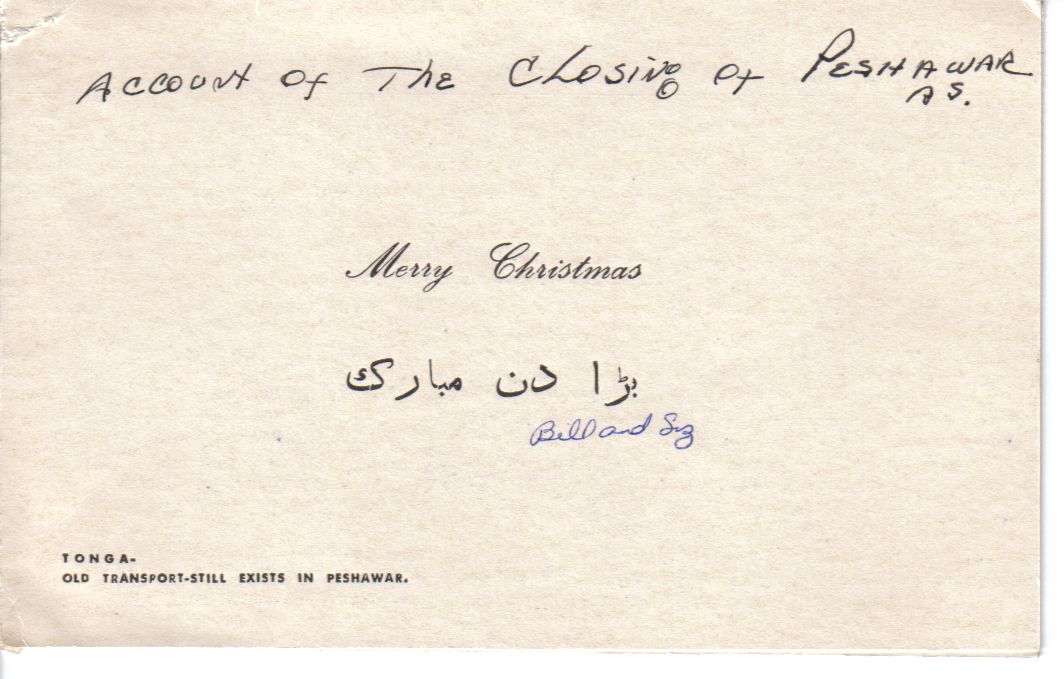 ACCOUNT OF THE CLOSING OF PESHAWAR
AS.
Merry Christmas
بڑا دن مبارک
Bill and
TONGA-
OLD TRANSPORT-STILL EXISTS IN PESHAWAR.